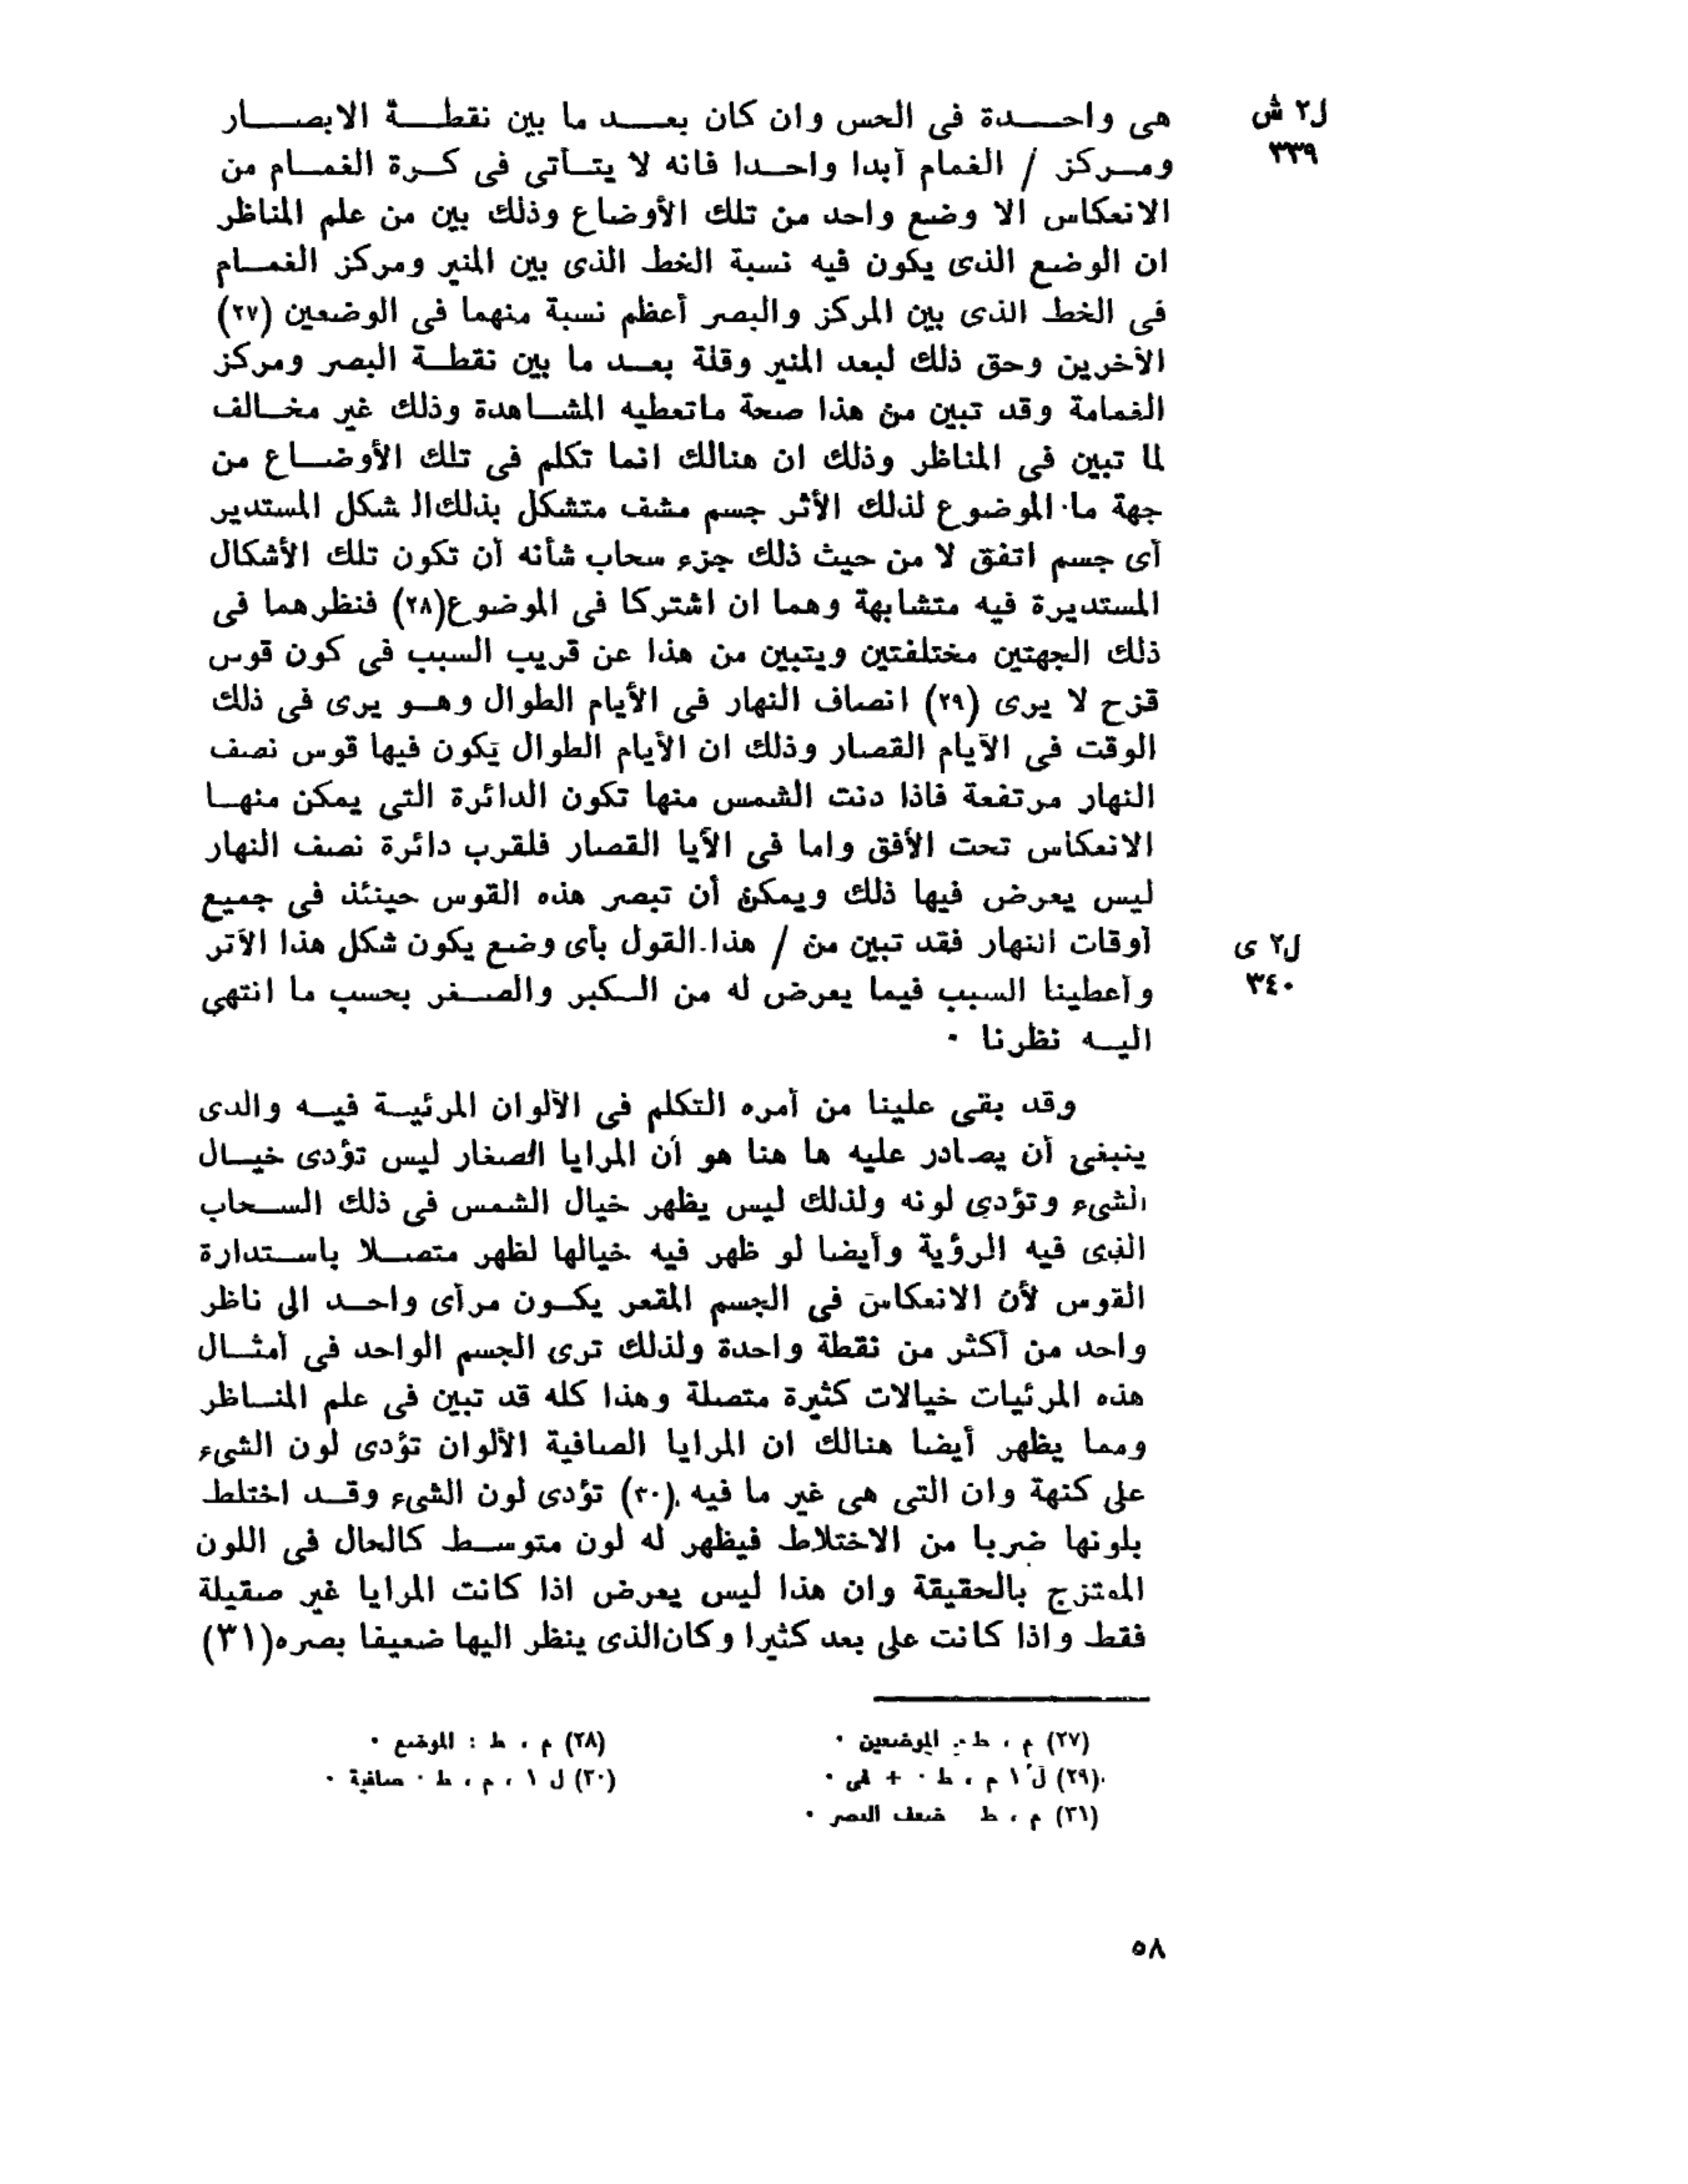 هى واحدة فى الحس وان كان بعد ما بين نقطة الابصار
ل٢ ش
ومركز / الغمام أبدا واحدا فانه لا يتأتى فى كرة الغمام من
٣٣٩
الانعكاس الا وضع واحد من تلك الأوضاع وذلك بين من علم المناظر
ان الوضع الذى يكون فيه نسبة الخط الذى بين المنير ومركز الغمام
فى الخط الذى بين المركز والبصر أعظم نسبة منهما فى الوضعين (٢٧)
الأخرين وحق ذلك لبعد المنير وقلة بعد ما بين نقطة البصر ومركز
الغمامة وقد تبين من هذا صحة ماتعطيه المشاهدة وذلك غير مخالف
لما تبين فى المناظر وذلك ان هنالك انما تكلم فى تلك الأوضاع من
جهة ما الموضوع لذلك الأثر جسم مشف متشكل بذلك الشكل المستدير
أى جسم اتفق لا من حيث ذلك جزء سحاب شأنه أن تكون تلك الأشكال
المستديرة فيه متشابهة وهما ان اشتركا فى الموضوع(٢٨) فنظرهما فى
ذلك الجهتين مختلفتين ويتبين من هذا عن قريب السبب فى كون قوس
قزح لا يرى (٢٩) انصاف النهار فى الأيام الطوال وهو يرى فى ذلك
الوقت فى الأيام القصار وذلك ان الأيام الطوال يكون فيها قوس نصف
النهار مرتفعة فاذا دنت الشمس منها تكون الدائرة التى يمكن منها
الانعكاس تحت الأفق واما فى الأيا القصار فلقرب دائرة نصف النهار
ليس يعرض فيها ذلك ويمكن أن تبصر هذه القوس حينئذ فى جميع
أوقات النهار فقد تبين من / هذا القول بأى وضع يكون شكل هذا الأتر
ل٢ ى
وأعطينا السبب فيما يعرض له من الكبر والصغر بحسب ما انتهى
٣٤٠
اليه نظرنا ٠
وقد بقى علينا من أمره التكلم فى الألوان المرئية فيه والدى
ينبغى أن يصادر عليه ها هنا هو أن المرايا الصغار ليس تؤدى خيال
الشىء وتؤدى لونه ولذلك ليس يظهر خيال الشمس فى ذلك السحاب
الذى فيه الرؤية وأيضا لو ظهر فيه خيالها لظهر متصلا باستدارة
القوس لأن الانعكاس فى الجسم المقعر يكون مرأى واحد الى ناظر
واحد من أكثر من نقطة واحدة ولذلك ترى الجسم الواحد فى أمثال
هذه المرئيات خيالات كثيرة متصلة وهذا كله قد تبين فى علم المناظر
ومما يظهر أيضا هنالك ان المرايا الصافية الألوان تؤدى لون الشىء
على كنهة وان التى هى غير ما فيه (٣٠) تؤدى لون الشىء وقد اختلط
بلونها ضربا من الاختلاط فيظهر له لون متوسط كالحال فى اللون
الممتزج بالحقيقة وان هذا ليس يعرض اذا كانت المرايا غير صقيلة
فقط واذا كانت على بعد كثيرا وكان الذى ينظر اليها ضعيفا بصره(٣١)
(٢٧) م ، ط : الموضعين ٠
(٢٨) م ، ط : الموضع ٠
(٢٩) ل ١ م ، ط ٠ + فى ٠
(٣٠) ل ١ ، م ، ط ٠ صافية ٠
(٣١) م ، ط ضعف البصر ٠
٥٨